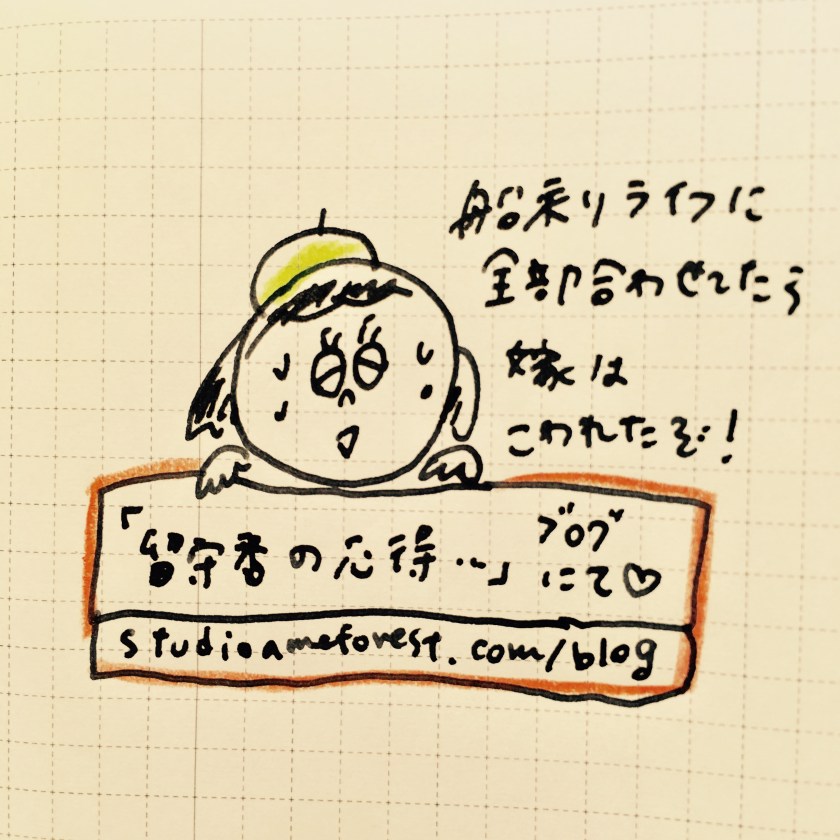 船乗りライフに
全部合わせてたら
嫁は
こわれたぞ!
「留守番の心得…」ブログ
にて♡
studioameforest.com/blog